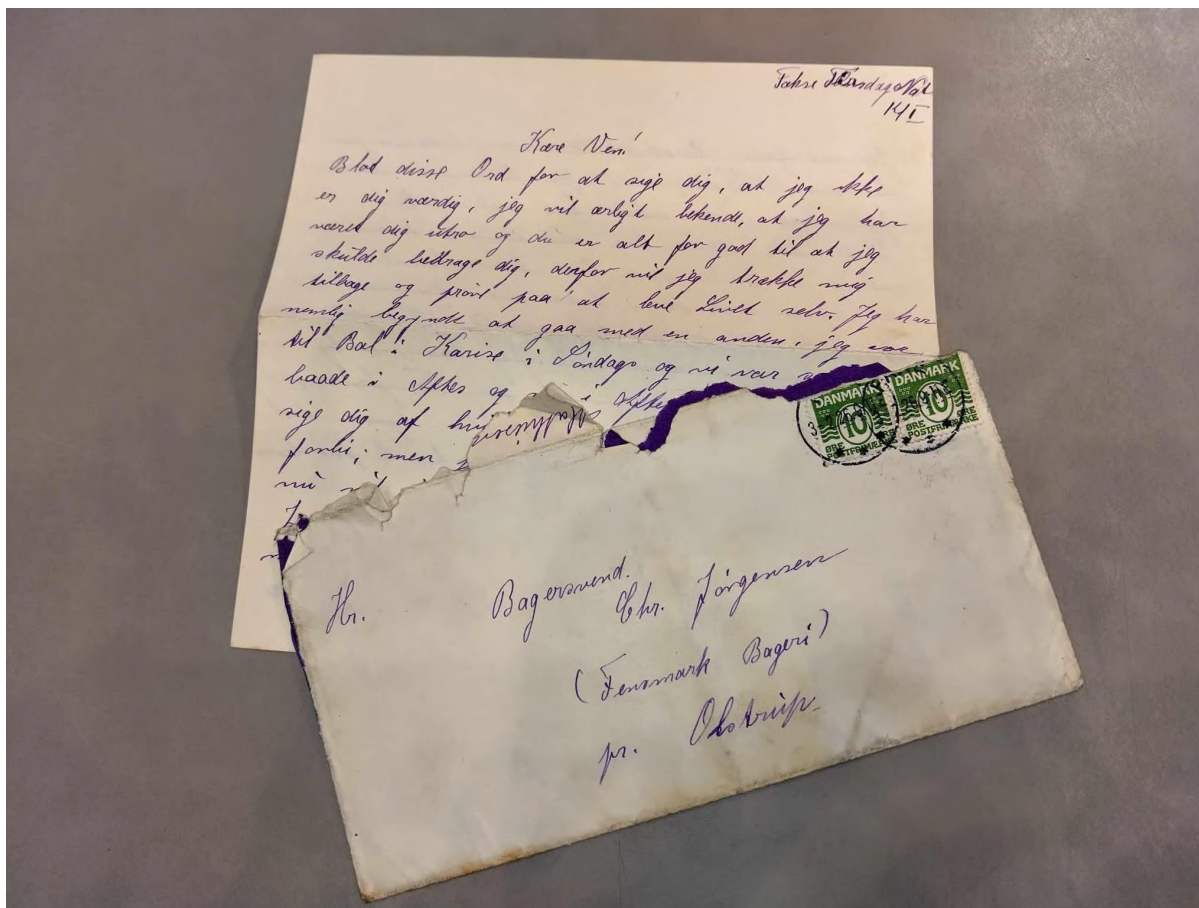 Fakse Torsdag Nat
14 I
Kære Ven!
Blot disse Ord for at sige dig, at jeg ikke
er dig værdig, jeg vil ærligt bekende, at jeg har
været dig utro og du er alt for god til at jeg
skulde bedrage dig, derfor vil jeg trække mig
tilbage og prøve paa at leve Livet selv. Jeg har
nemlig begyndt at gaa med en anden, jeg var
til Bal i Karise i Søndags og vi var
baade i Aftes og i
sige dig af
forbi; men
nu
DANMARK
10
ØRE
POSTFRIMÆRKE
DANMARK
10
ØRE
POSTFRIMÆRKE
Hr. Bagersvend.
Chr. Jörgensen
(Fensmark Bageri)
pr. Olstrup